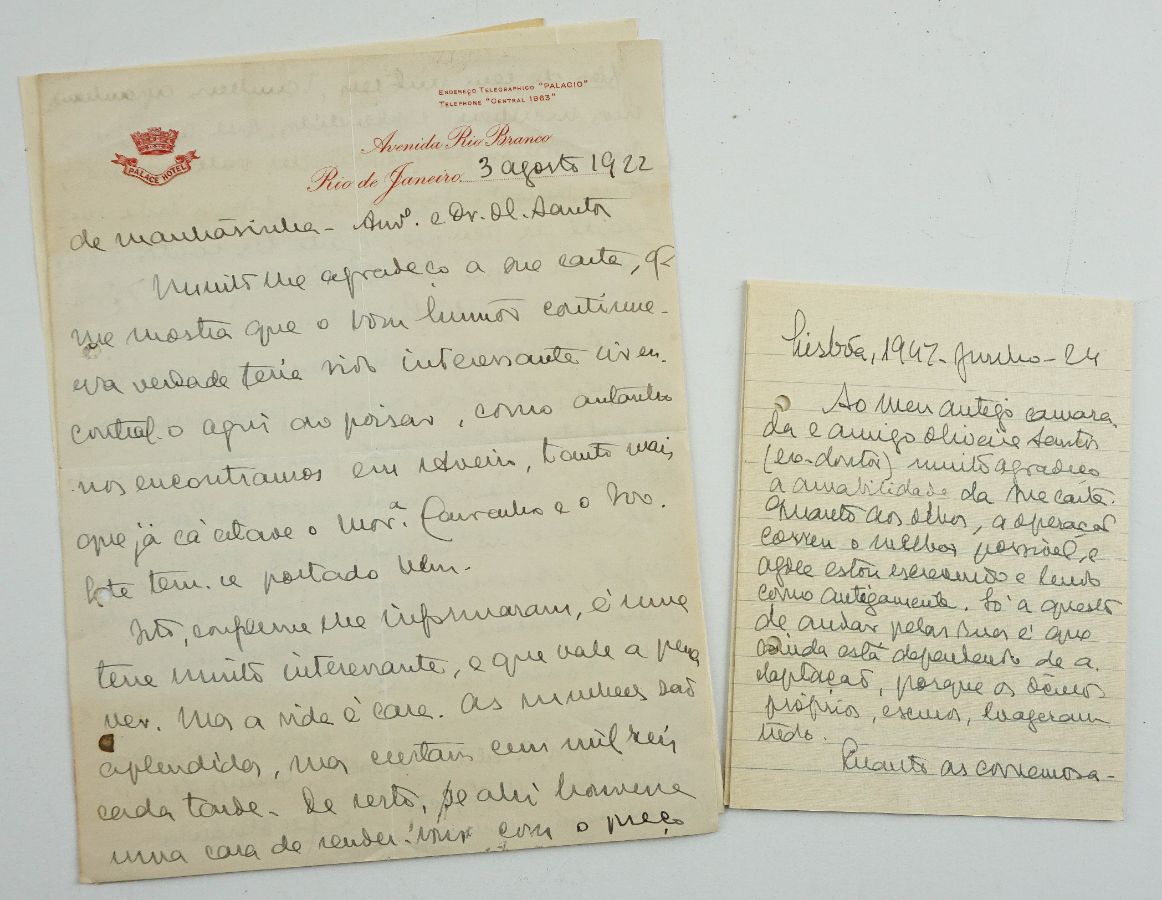 ENDEREÇO TELEGRAPHICO "PALACIO"
TELEPHONE "CENTRAL 1963"
PALACE HOTEL
Avenida Rio Branco
Rio de Janeiro 3 agosto 1922
de manhãsinha - Am.º e Dr. Ol. Santos
Muito lhe agradeço a sua carta, q.
me mostra que o bom humor continua.
Na verdade teria sido interessante
contral-o aqui ao poisar, como
nos encontramos em Aveiro, tanto mais
que já cá estava o
tem-se portado bem.
Isto, conforme lhe informaram, é uma
terra muito interessante, e que vale a pena
ver. Mas a vida é cara. As mulheres são
esplendidas, mas custam cem mil reis
cada tarde. De resto, se ahi houvera
uma casa de rendez-vous com o preço
Lisbôa, 1947-Junho-24
Ao meu antigo camara-
da e amigo Oliveira Santos
(ex-doutor) muito agradeço
a amabilidade da sua carta.
Quanto aos olhos, a operação
correu o melhor possivel, e
agora estou escrevendo e lendo
como antigamente. Só a questão
de andar pelas ruas é que
ainda está dependendo de a-
daptação, porque os
próprios, exageram
tudo.
Quanto as